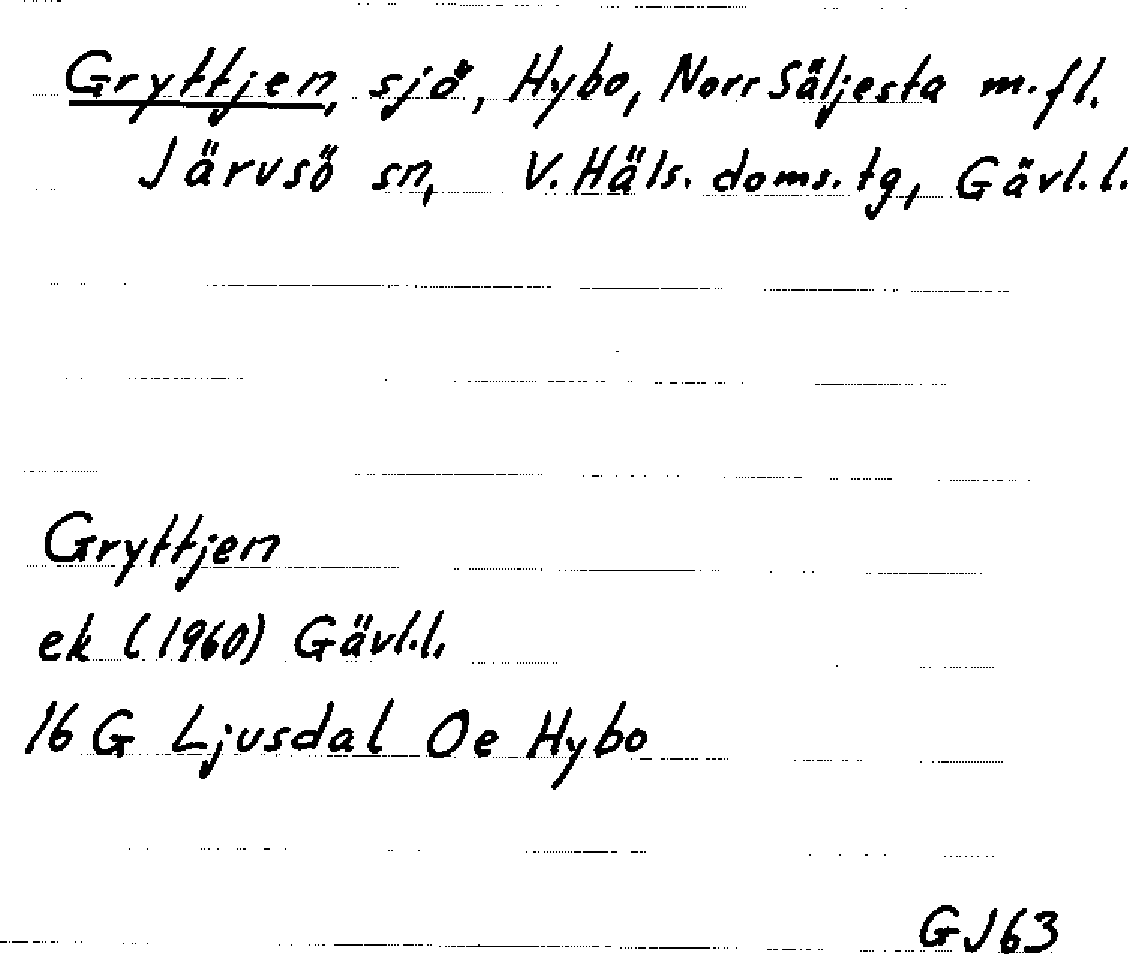 Gryttjen, sjö, Hybo, Norr Säljesta m.fl.
Järvsö sn, V. Häls. doms. tg, Gävl.l.
Gryttjen
ek (1960) Gävl.l.
16 G Ljusdal Oe Hybo
GJ63